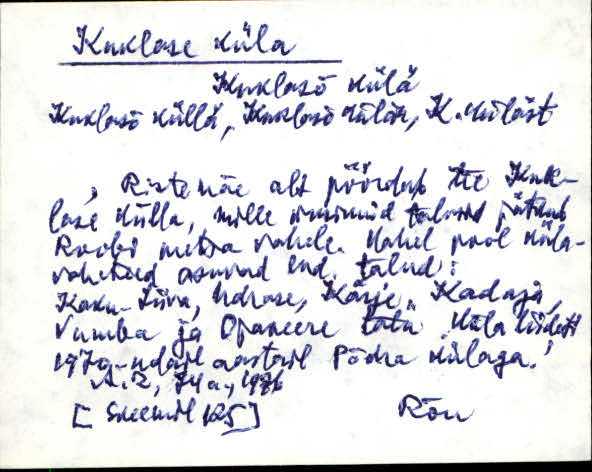 Kuklase küla
Kuklasõ külä
Kuklasõ küllä, Kuklasõ külän, K. küläst
, Ristemäe alt pöördub tee Kuk-
lase külla, mille talusid jätkub
Roobi metsa vahele. Kahel pool küla-
vaheteed asuvad end. talud:
Kaku-Liiva, Udrase, Kärje, Kadaja,
Vumba ja talu Küla liideti
1970-ndail aastail Põdra külaga.'
A.R, 74 a., 1976
[Skeemil 125] Rõu